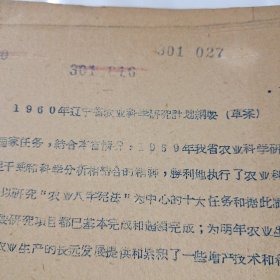 0
301 027
301 216
1960年辽宁省农业科学研究计划綱要(草案)
国家任务,結合本省情况,1959年我省农业科学研
科学分析相結合的精神,勝利地执行了农业科
以研究"农业八字宪法"为中心的十大任务和据此
研究項目都已基本完成和超額完成;为明年农业生
农业生产的长远发展提供和累积了一些增产技术和